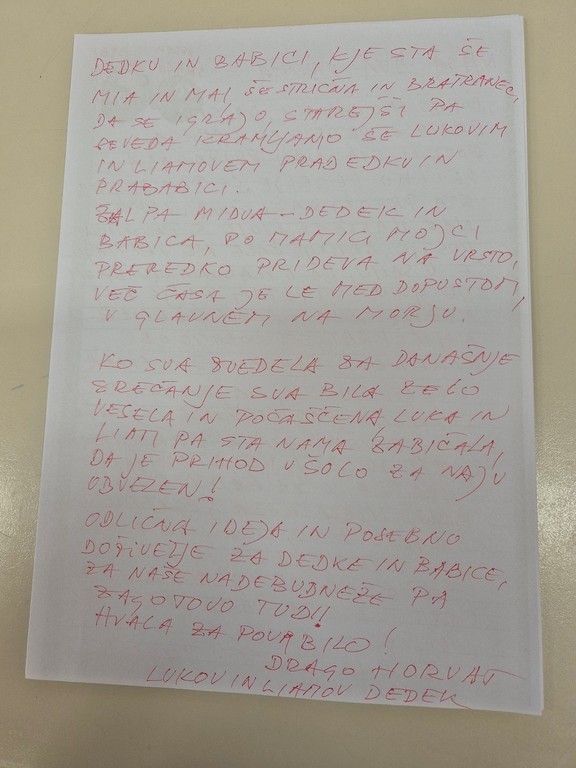 DEDKU IN BABICI, KJE STA ŠE
MIA IN MAI, SESTRIČNA IN BRATRANEC,
DA SE IGRAJO, STAREJŠI PA
SEVEDA KRAMLJAMO ŠE LUKOVIM
IN LIAMOVEM PRADEDKU IN
PRABABICI.
ŽAL PA MIDVA - DEDEK IN
BABICA, PO MAMICI MOJCI
PREREDKO PRIDEVA NA VRSTO,
VEČ ČASA JE LE MED DOPUSTOM,
V GLAVNEM NA MORJU.
KO SVA ZVEDELA ZA DANAŠNJE
SREČANJE SVA BILA ZELO
VESELA IN POČAŠČENA, LUKA IN
LIAM PA STA NAMA ZABIČALA,
DA JE PRIHOD V ŠOLO ZA NAJU
OBVEZEN!
ODLIČNA IDEJA IN POSEBNO
DOŽIVETJE ZA DEDKE IN BABICE,
ZA NAŠE NADEBUDNEŽE PA
ZAGOTOVO TUDI!
HVALA ZA POVABILO!
DRAGO HORVAT
LUKOV IN LIAMOV DEDEK